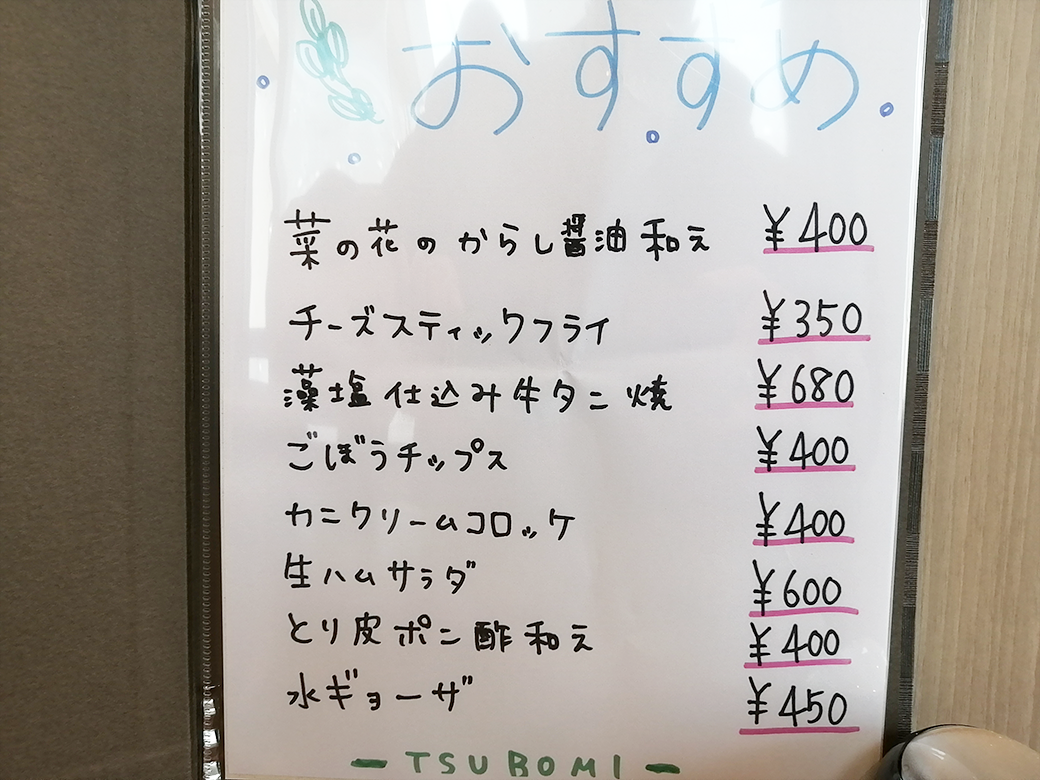 おすすめ
菜の花のからし醤油和え ¥400
チーズスティックフライ ¥350
藻塩仕込み牛タン焼 ¥680
ごぼうチップス ¥400
カニクリームコロッケ ¥400
生ハムサラダ ¥600
とり皮ポン酢和え ¥400
水ギョーザ ¥450
- TSUBOMI -